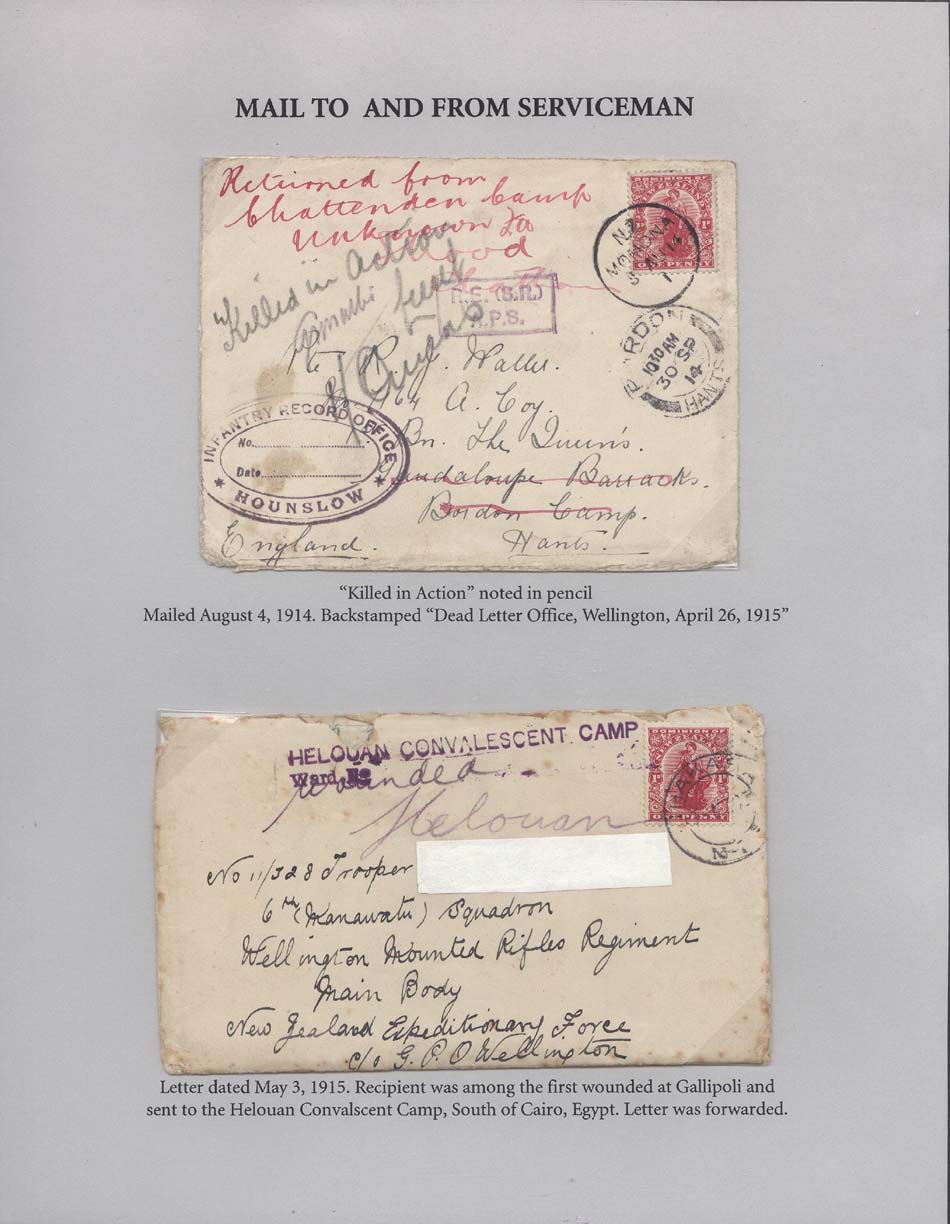 MAIL TO AND FROM SERVICEMAN
Returned from
Chattenden Camp
Unknown to
DOMINION OF
NEW ZEALAND
1D
ONE PENNY
N.Z.
MOMONA
14
Killed in Action
R.E. (S.R.)
A.P.S.
BORDON
10 30 AM
30 SP
14
HANTS
Pte R. J. Waller.
A. Coy.
Bn. The Queen's.
Guadaloupe Barracks.
Bordon Camp.
Hants.
England.
INFANTRY RECORD OFFICE
No.
Date
★ HOUNSLOW ★
“Killed in Action” noted in pencil
Mailed August 4, 1914. Backstamped “Dead Letter Office, Wellington, April 26, 1915”
HELOUAN CONVALESCENT CAMP
Ward No
wounded
Helouan
DOMINION OF
NEW ZEALAND
1D
ONE PENNY
No 11/328 Trooper
6th (Manawatu) Squadron
Wellington Mounted Rifles Regiment
Main Body
New Zealand Expeditionary Force
c/o G. P. O Wellington
Letter dated May 3, 1915. Recipient was among the first wounded at Gallipoli and
sent to the Helouan Convalscent Camp, South of Cairo, Egypt. Letter was forwarded.